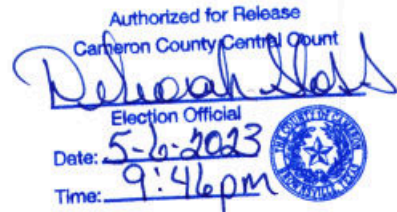 Authorized for Release
Cameron County Central Count
Deborah
Election Official
Date: 5-6-2023
Time: 9:46pm
THE COUNTY OF CAMERON
BROWNSVILLE, TEXAS